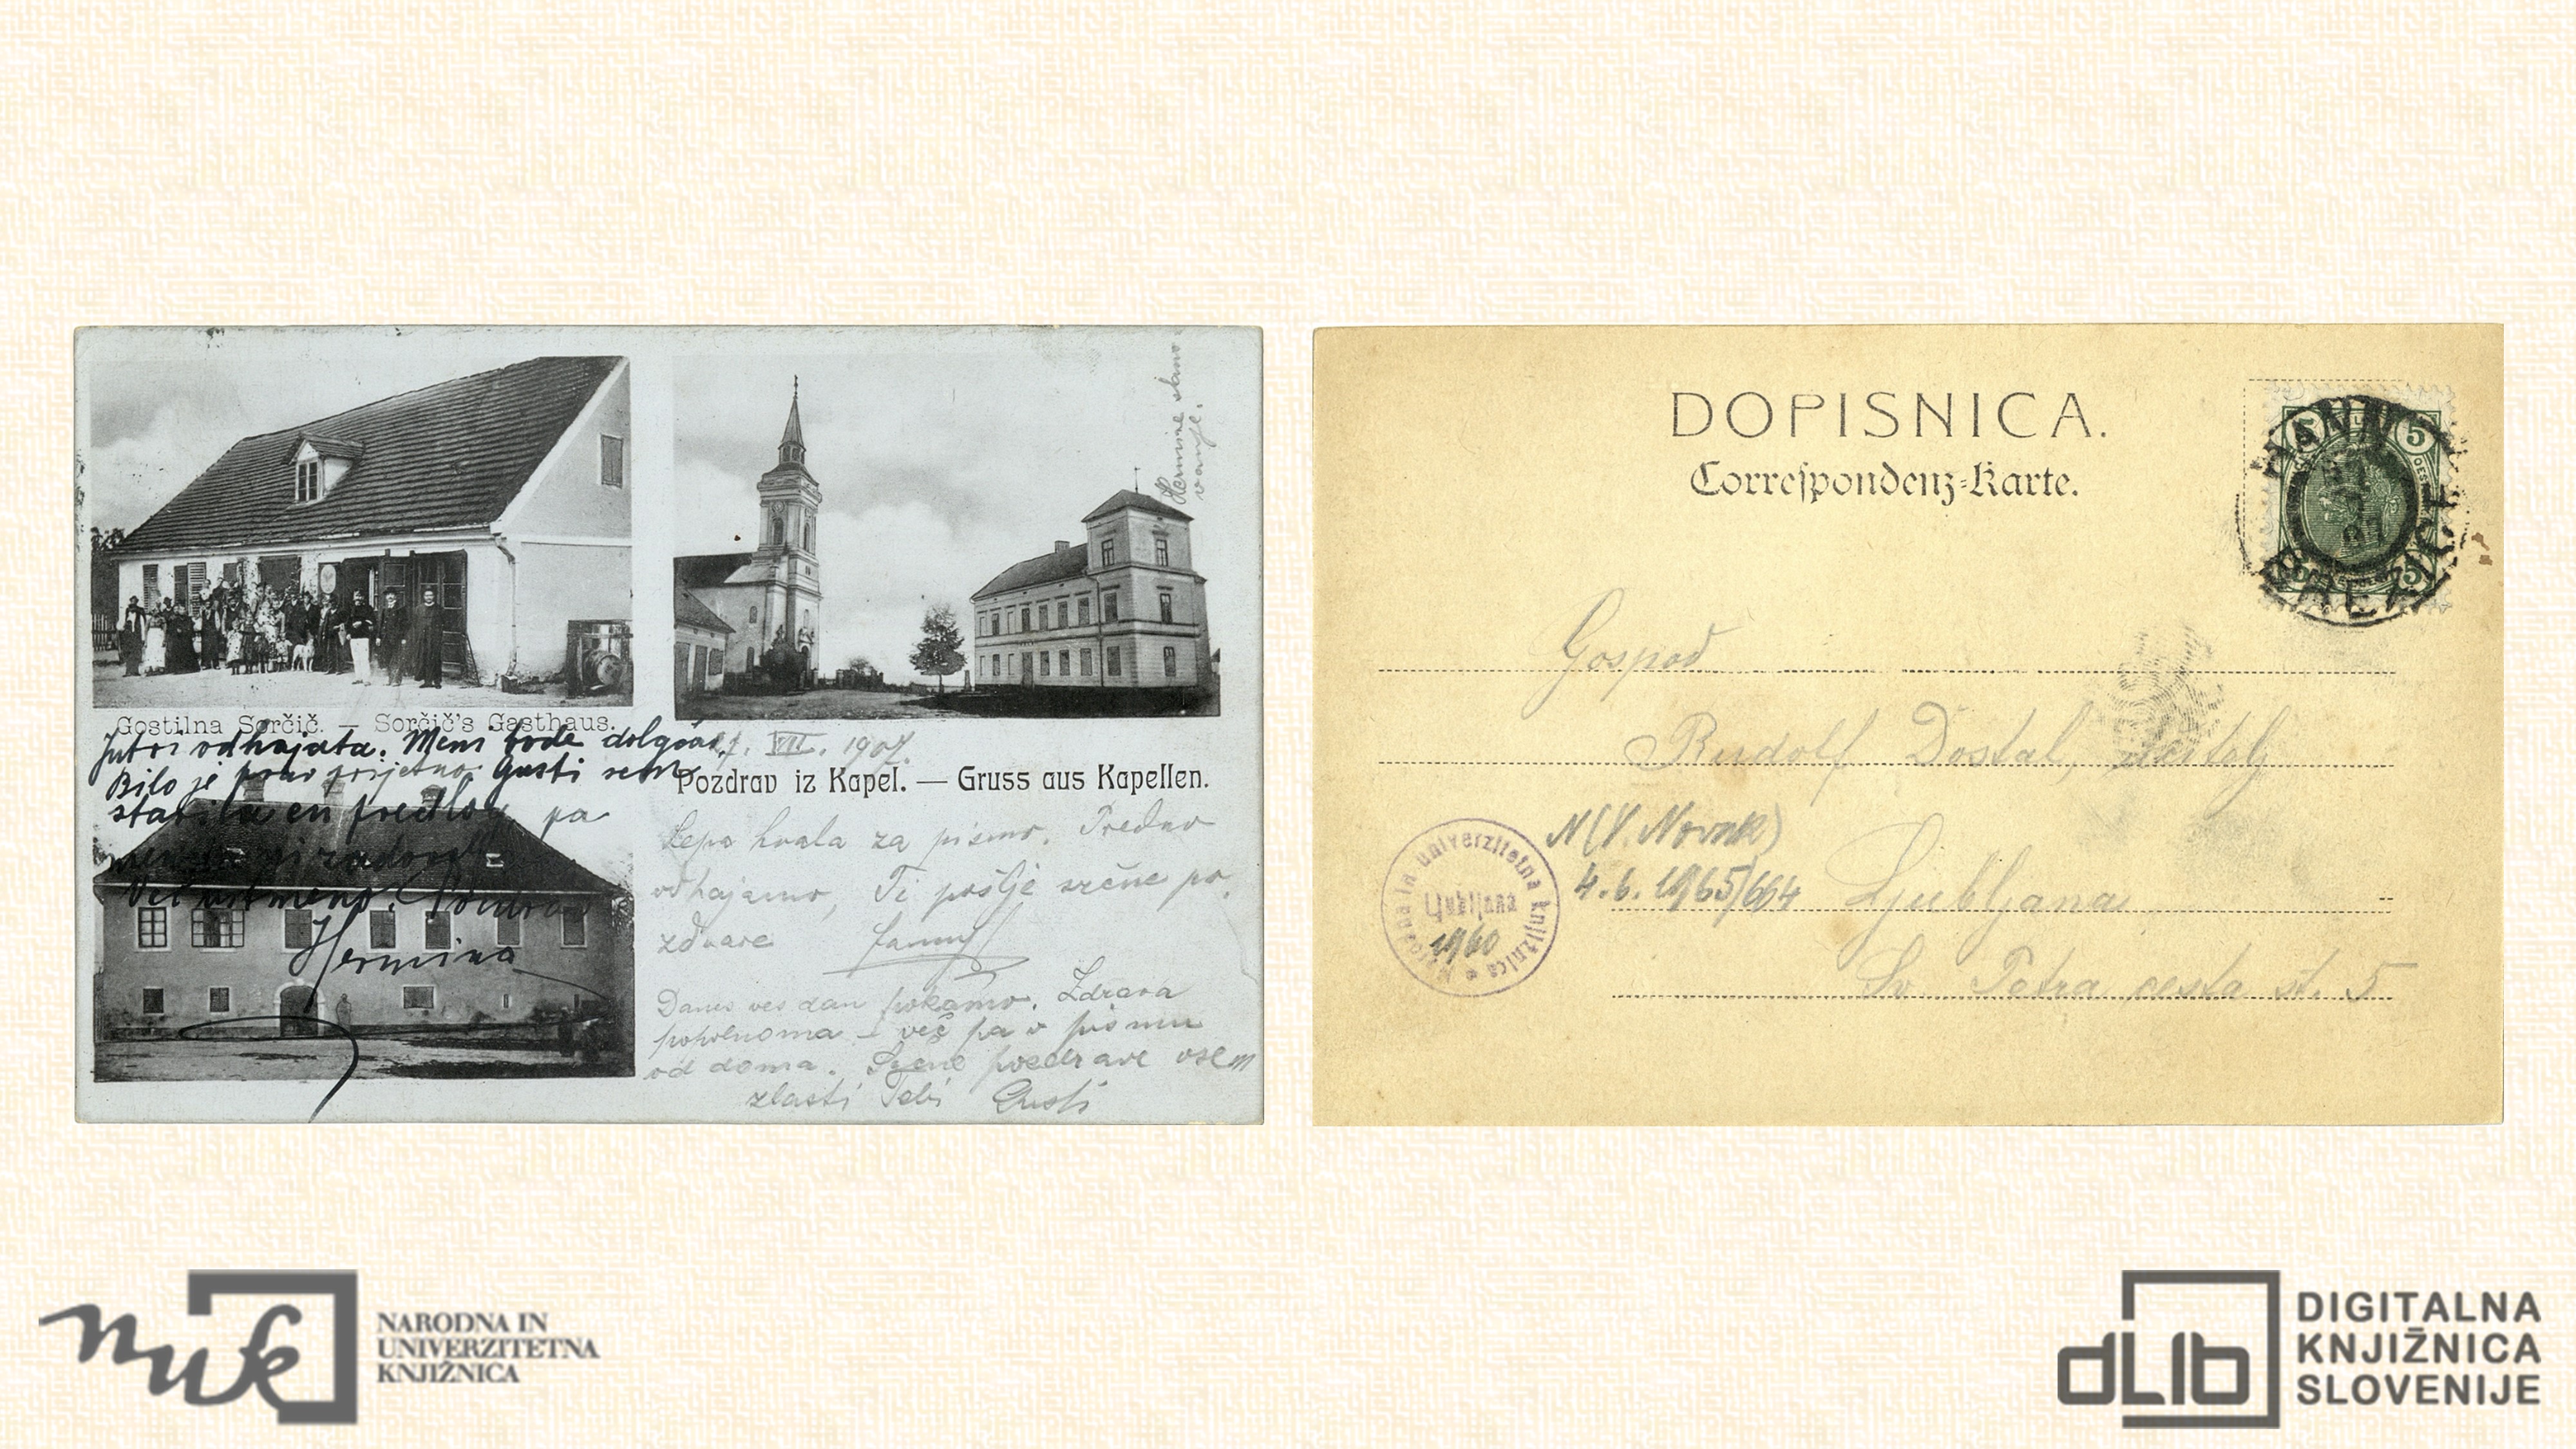 Hermine stano
vanje.
Gostilna Sorčič. — Sorčič's Gasthaus.
Jutri odhajata. Meni bode dolgčas.
Bilo je prav prijetno. Gusti sem
stavila en predlog, pa
Več ustmeno. Pozdrav
Hermina
VII. 1907.
Pozdrav iz Kapel. — Gruss aus Kapellen.
Lepa hvala za pismo. Predno
odhajamo, Ti pošlje srčne po
zdrave Fanny
Danes ves dan pokamo. Zdrava
popolnoma – več pa v pismu
od doma. Srčne pozdrave vsem
zlasti Tebi Gusti
DOPISNICA.
Correspondenz-Karte.
5 5
RANN
BREŽICE
Gospod
Rudolf Dostal, učitelj
Ljubljana
Sv. Petra cesta št. 5
N (V. Novak)
4. 6. 1965/664
Narodna in univerzitetna knjižnica
Ljubljana
1960
nuk
NARODNA IN
UNIVERZITETNA
KNJIŽNICA
dLib
DIGITALNA
KNJIŽNICA
SLOVENIJE